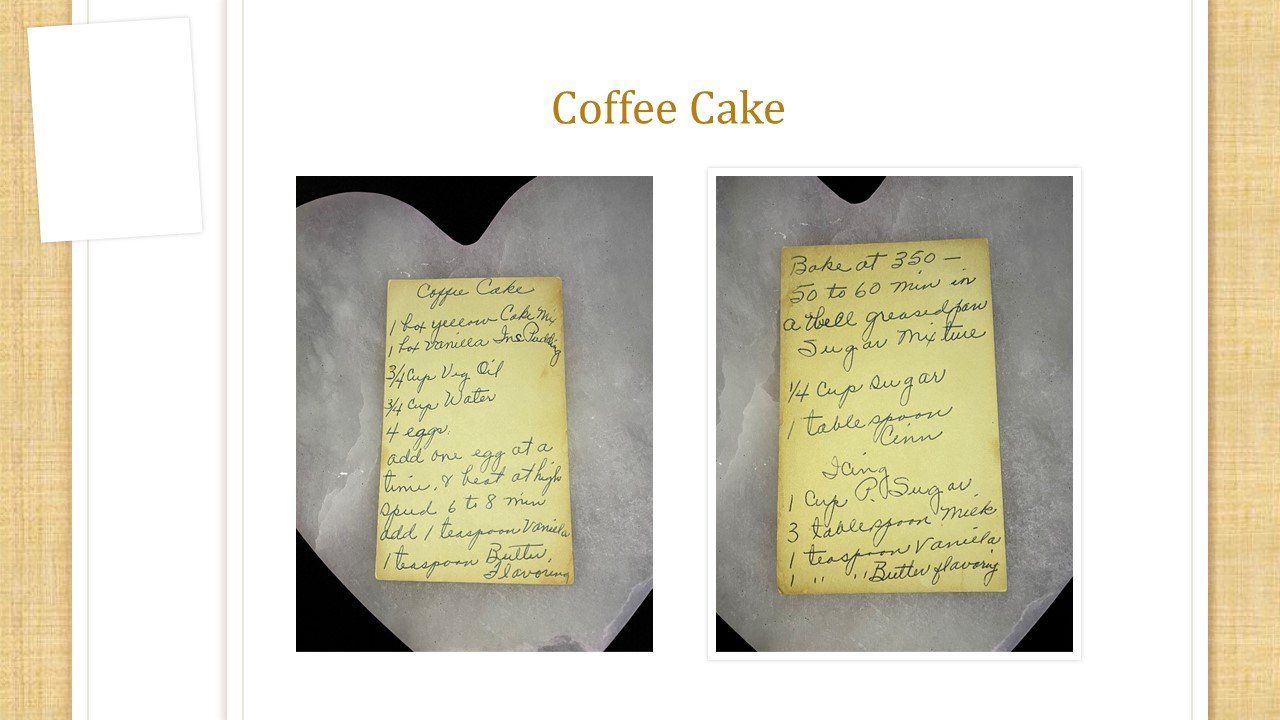 Coffee Cake
Coffie Cake
1 box yellow Cake Mix
1 box Vanilla Ins Pudding
3/4 Cup Veg Oil
3/4 Cup Water
4 eggs.
add one egg at a
time, & beat at high
speed 6 to 8 min
add 1 teaspoon Vanilla
1 teaspoon Butter,
Flavoring
Bake at 350 —
50 to 60 min in
a well greased pan
Sugar Mixture
1/4 Cup Sugar
1 tablespoon
Cinn
Icing
1 Cup P. Sugar
3 tablespoon Milk
1 teaspoon Vanilla
1 " " Butter flavoring